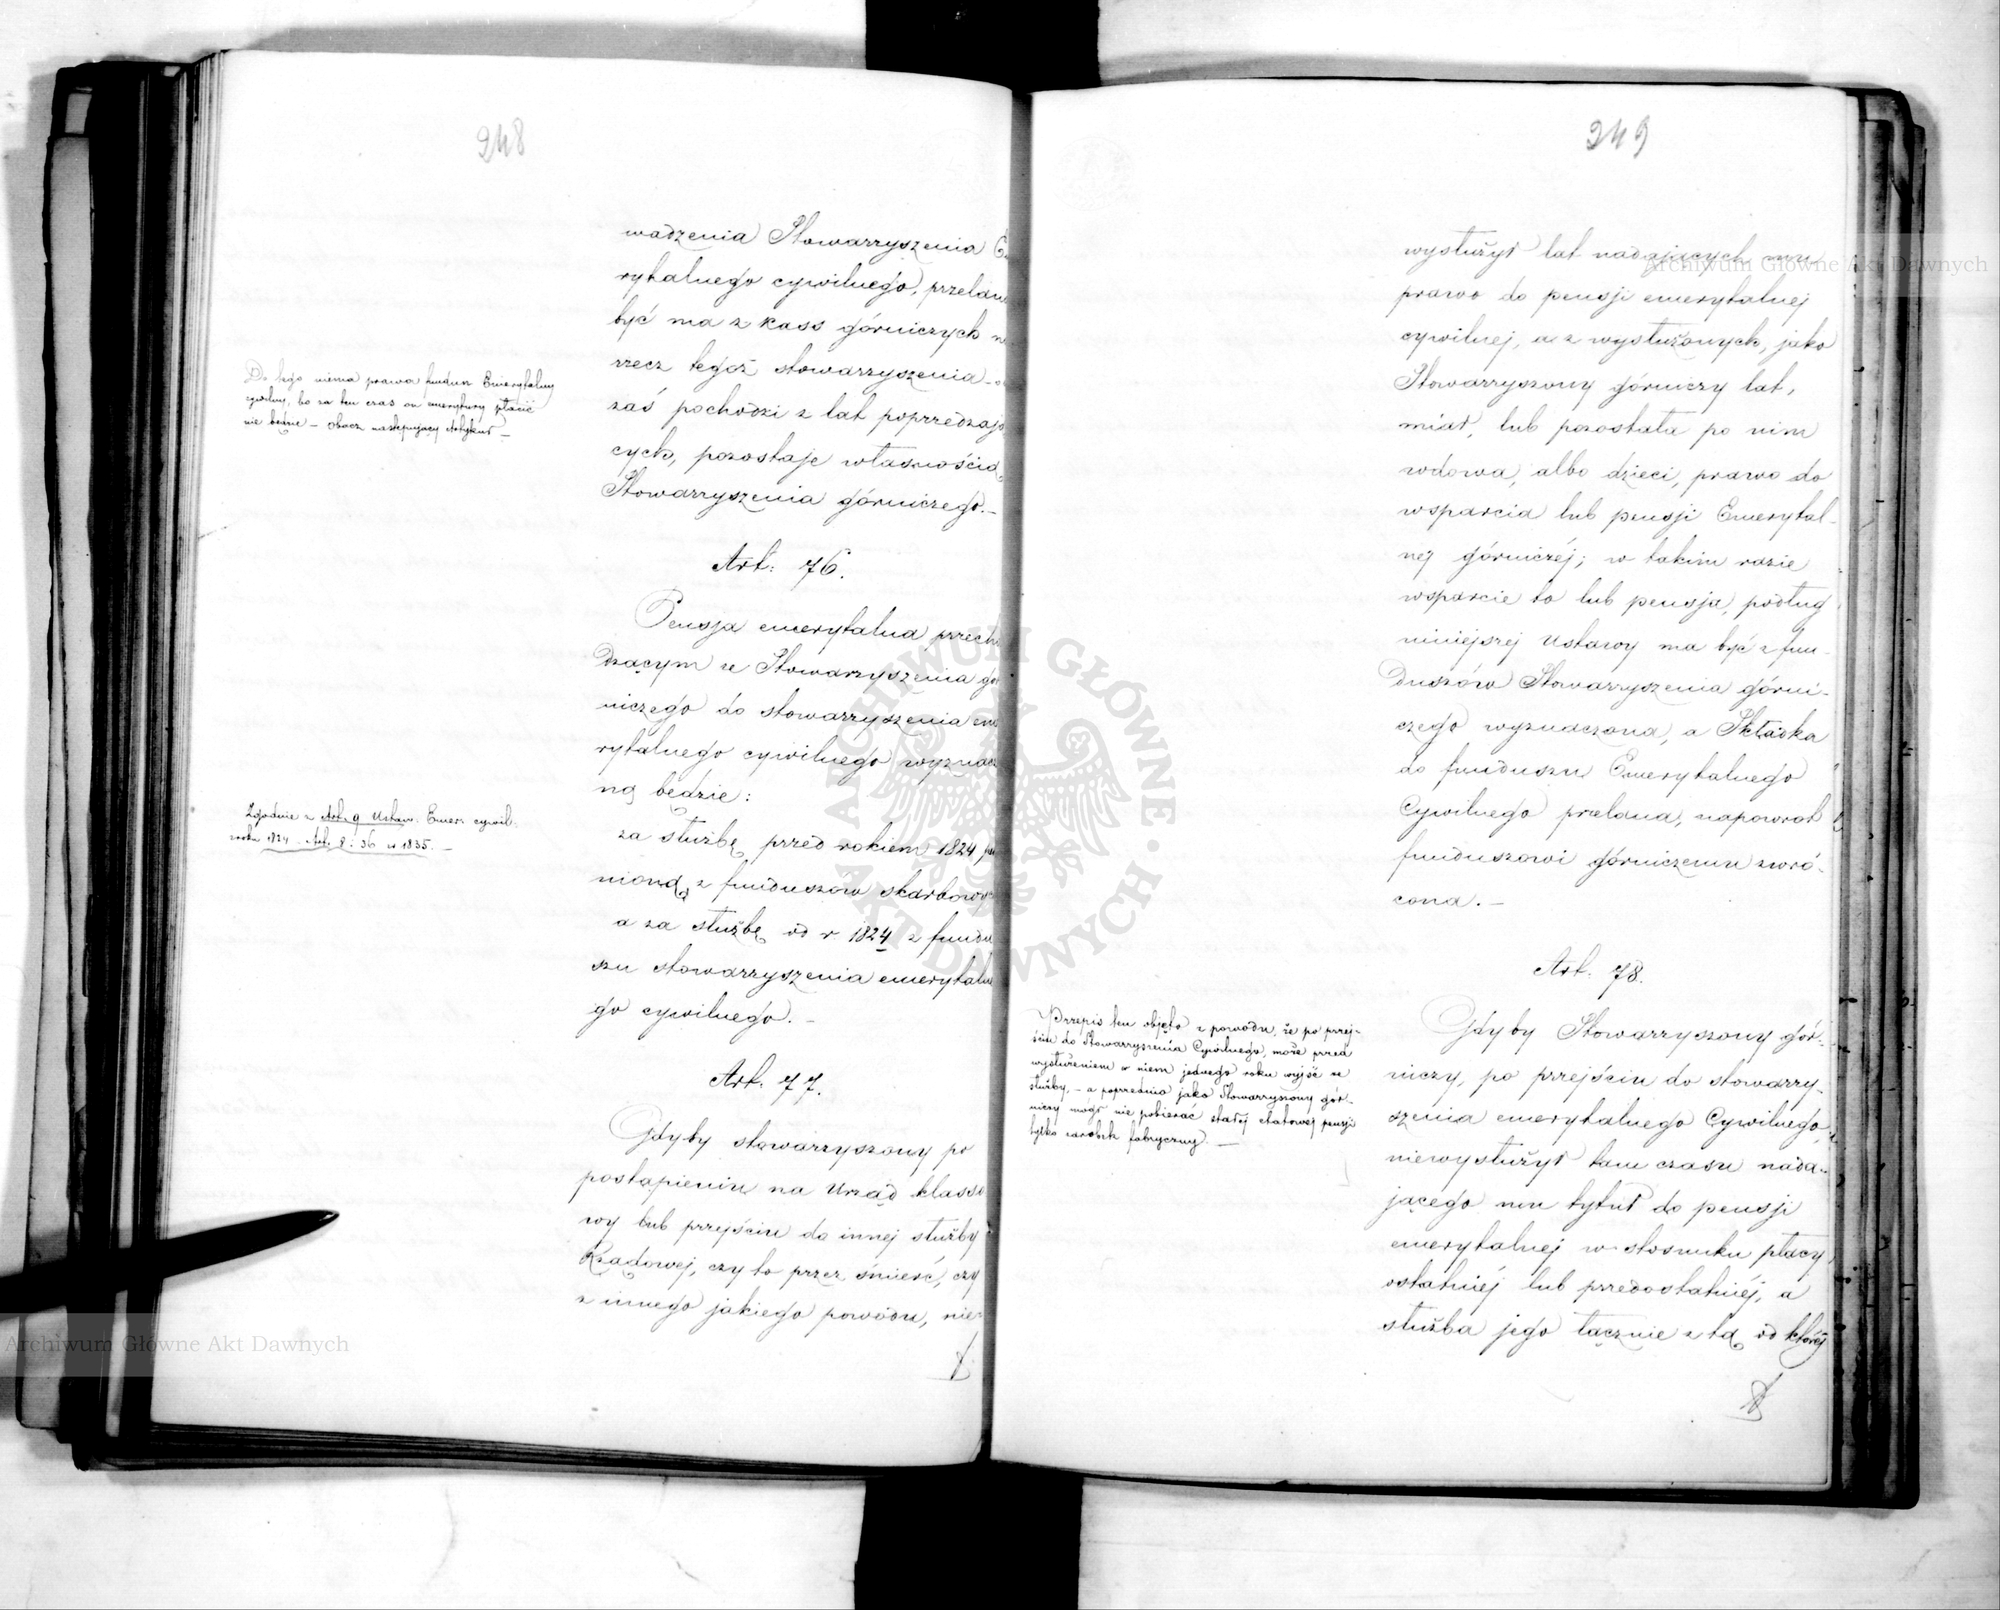 248
wadzenia Stowarzyszenia E
rytalnego cywilnego, przelan
być ma z kass górniczych n
rzecz tegoż stowarzyszenia - 
zaś pochodzi z lat poprzedzają
cych, pozostaje własnością
Stowarzyszenia górniczego. -
Do tego niema prawa fundusz Emerytalny
cywilny, bo za ten czas on emerytury płacić
nie będzie - obacz następujący Artykuł -
Art: 76.
Pensja emerytalna przecho
dzącym ze Stowarzyszenia gó
niczego do stowarzyszenia eme
rytalnego cywilnego wyznacz
ną będzie:
za służbę przed rokiem 1824 peł
nioną z funduszów skarbowych
a za służbę od r. 1824 z fundu
szu stowarzyszenia emerytalne
go cywilnego. -
Zgodnie z Art. 9 Ustaw: Emer: cywil:
roku 1824 - Art. 8 i 36 z 1835. -
Art. 77.
Gdyby stowarzyszony po
postąpieniu na Urząd klasso
wy lub przejściu do innej służby
Rządowej, czy to przez śmierć, czy
z innego jakiego powodu, nie-
249
wysłużył lat nadających mu
prawo do pensji emerytalnej
cywilnej, a z wysłużonych, jako
Stowarzyszony górniczy lat,
miał, lub pozostała po nim
wdowa, albo dzieci, prawo do
wsparcia lub pensji Emerytal-
nej górniczéj; w takim razie
wsparcie to lub pensja, podług
niniejszej Ustawy ma być z fun-
duszów Stowarzyszenia górni-
czego wyznaczona, a Składka
do funduszu Emerytalnego
Cywilnego przelana, napowrót
funduszowi górniczemu zwró-
cona. -
Art. 78.
Gdyby Stowarzyszony gór-
niczy, po przejściu do stowarzy-
szenia emerytalnego Cywilnego,
niewysłużył tam czasu nada-
jącego mu tytuł do pensji
emerytalnej w stosunku płacy
ostatniéj lub przedostatniéj, a
służba jego łącznie z tą od któréj
Przepis ten objęto z powodu, że po przej-
ściu do Stowarzyszenia Cywilnego, może przed
wysłużeniem w niem jednego roku wyjść ze
służby, - a poprzednio jako Stowarzyszony gór-
niczy mógł nie pobierać stałej etatowej pensji
tylko zarobek fabryczny. -
Archiwum Główne Akt Dawnych
ARCHIWUM GŁÓWNE AKT DAWNYCH
Archiwum Główne Akt Dawnych